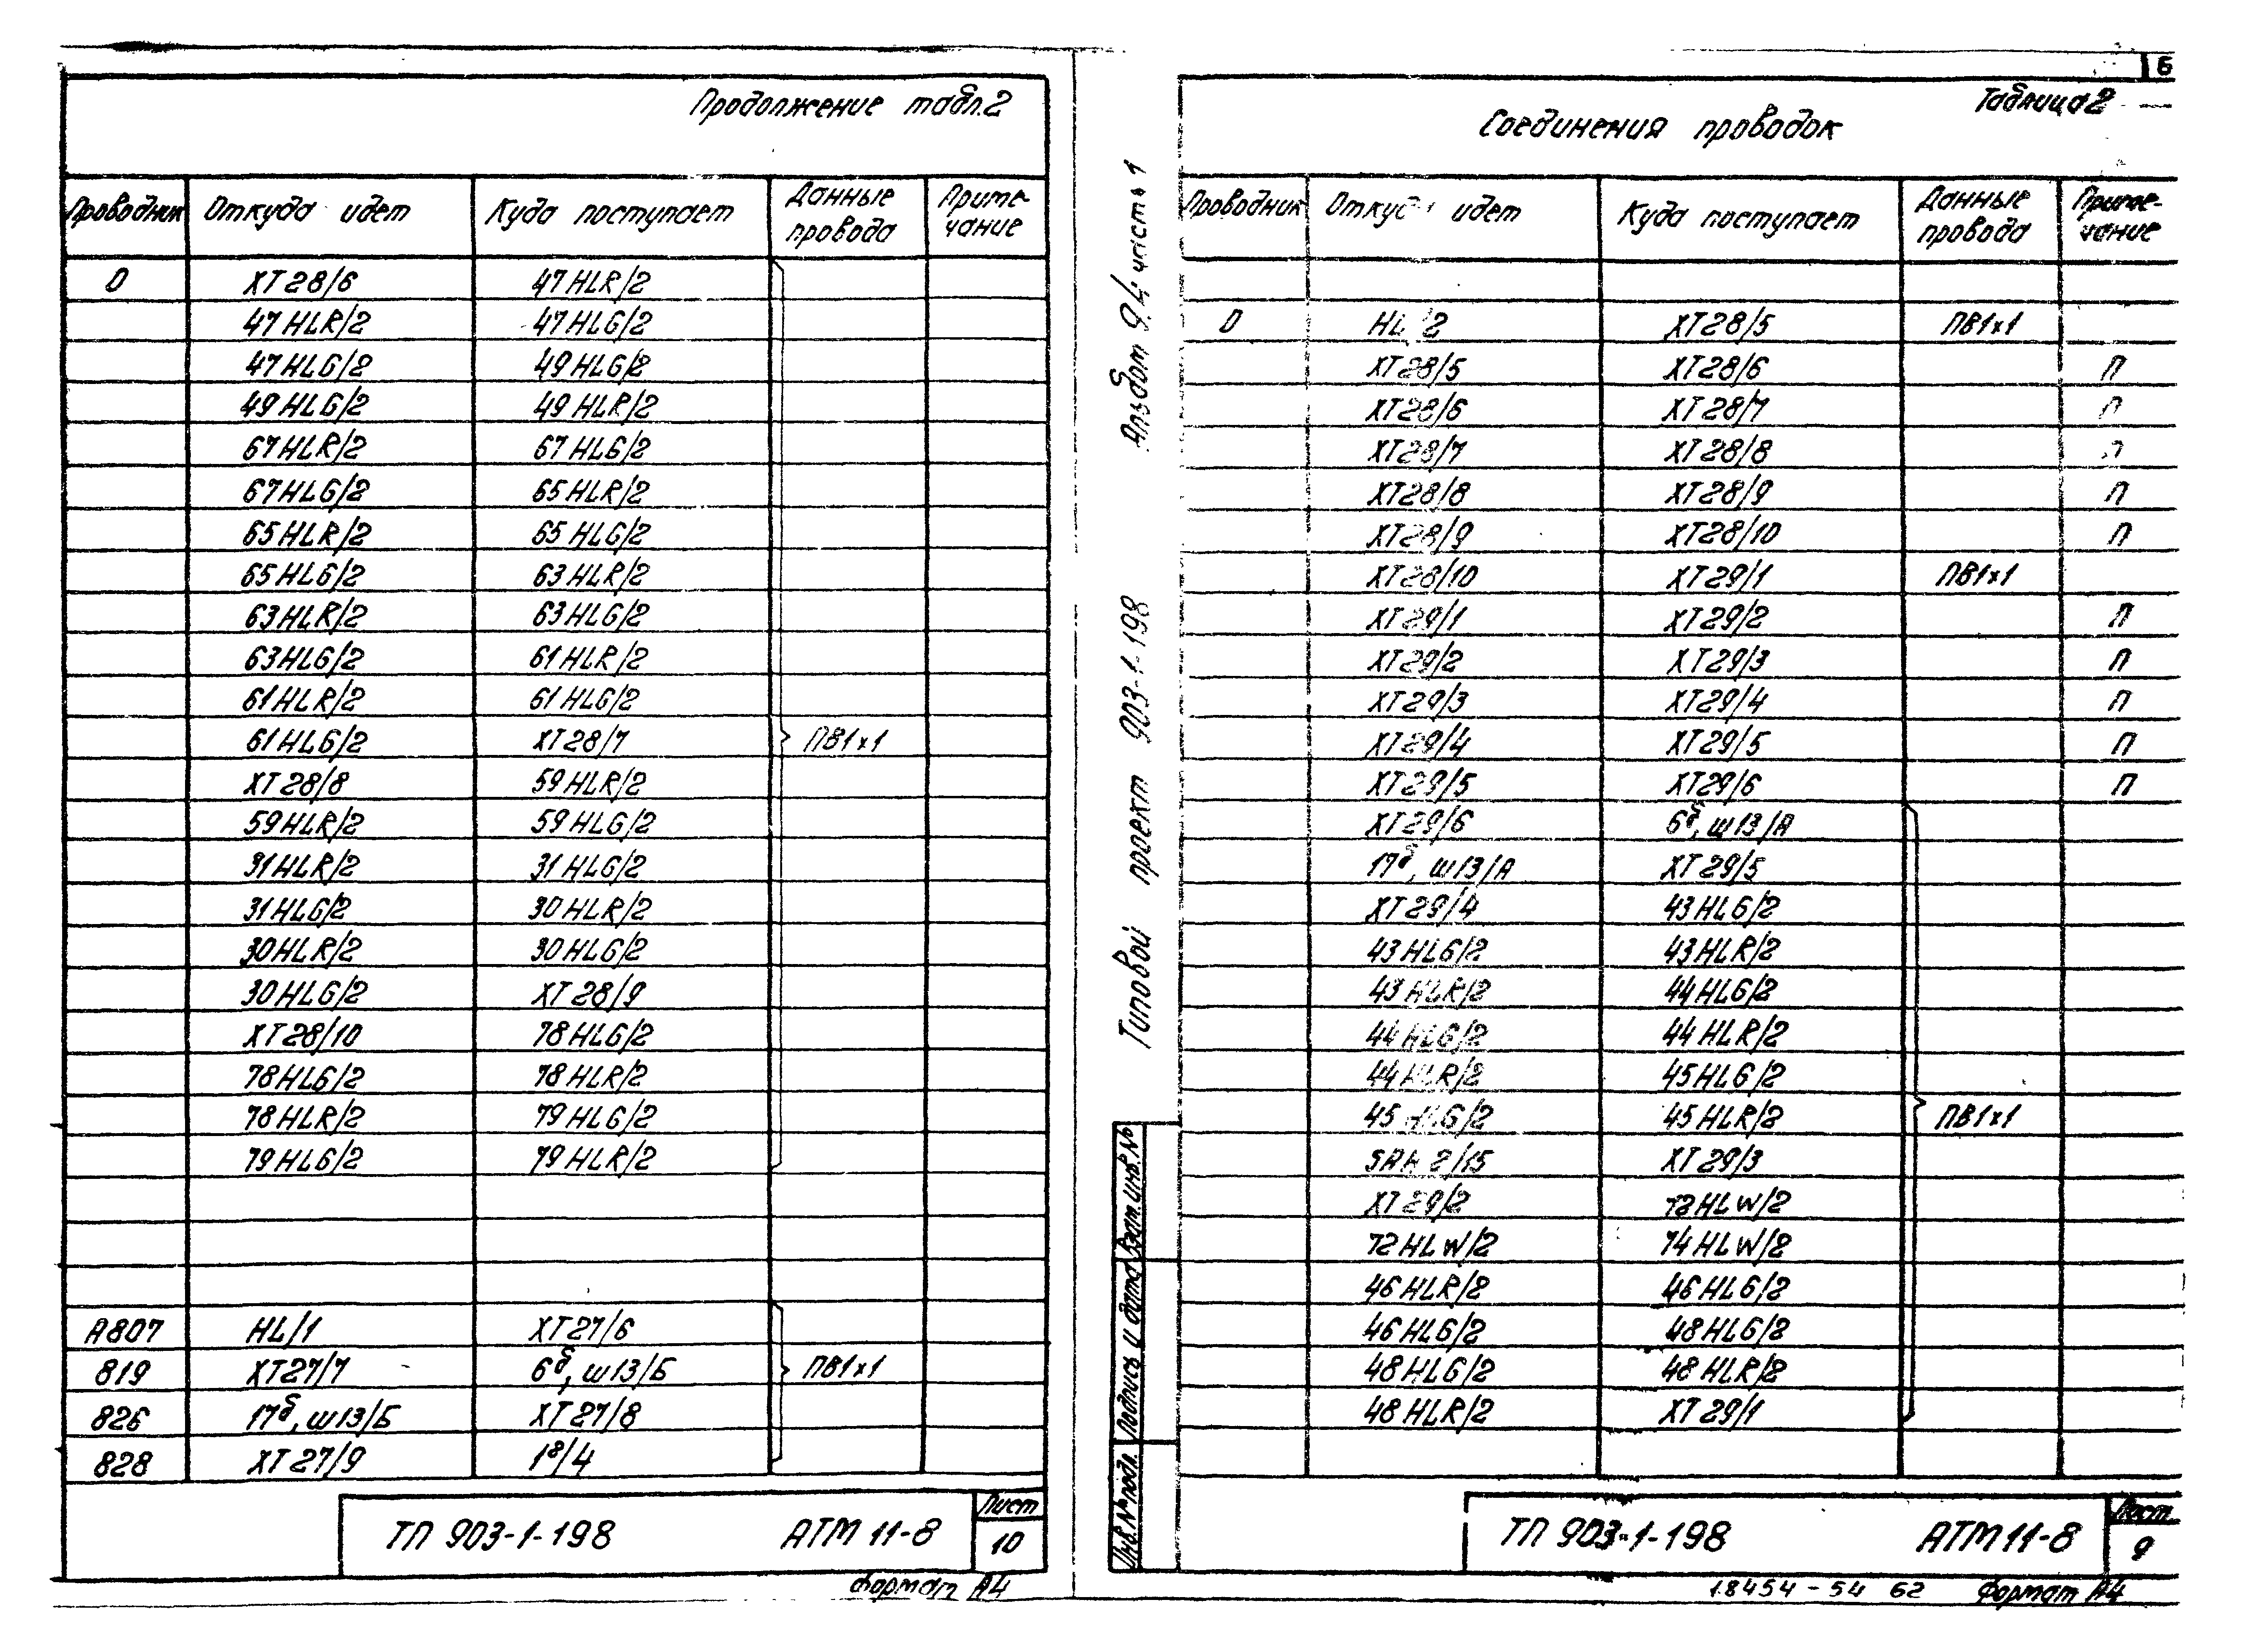 Продолжение табл.2
Проводник Откуда идет Куда поступает Данные провода Приме-чание
0 XT28/6 47HLR/2
47HLR/2 47HLG/2
47HLG/2 49HLG/2
49HLG/2 49HLR/2
67HLR/2 67HLG/2
67HLG/2 65HLR/2
65HLR/2 65HLG/2
65HLG/2 63HLR/2
63HLR/2 63HLG/2
63HLG/2 61HLR/2
61HLR/2 61HLG/2
61HLG/2 XT28/7 ПВ1х1
XT28/8 59HLR/2
59HLR/2 59HLG/2
31HLR/2 31HLG/2
31HLG/2 30HLR/2
30HLR/2 30HLG/2
30HLG/2 XT28/9
XT28/10 78HLG/2
78HLG/2 78HLR/2
78HLR/2 79HLG/2
79HLG/2 79HLR/2
А807 HL/1 XT27/6
819 XT27/7 6б, ш13/Б ПВ1х1
826 17б, ш13/Б XT27/8
828 XT27/9 18/4
ТП 903-1-198 АТМ 11-8 Лист 10
Формат А4
Альбом 9.4 часть 1
Типовой проект 903-1-198
Взам.инв.№
Подпись и дата
Инв.№подл.
6
Таблица2
Соединения проводок
Проводник Откуда идет Куда поступает Данные провода Приме-чание
0 XT28/5 ПВ1х1
XT28/5 XT28/6 П
XT28/6 XT28/7 П
XT28/7 XT28/8 П
XT28/8 XT28/9 П
XT28/9 XT28/10 П
XT28/10 XT29/1 ПВ1х1
XT29/1 XT29/2 П
XT29/2 XT29/3 П
XT29/3 XT29/4 П
XT29/4 XT29/5 П
XT29/5 XT29/6 П
XT29/6 6б, ш13/А
17б, ш13/А XT29/5
XT29/4 43HLG/2
43HLG/2 43HLR/2
43HLR/2 44HLG/2
44HLG/2 44HLR/2
44HLR/2 45HLG/2
45HLG/2 45HLR/2 ПВ1х1
XT29/3
XT29/2 72HLW/2
72HLW/2 74HLW/2
46HLR/2 46HLG/2
46HLG/2 48HLG/2
48HLG/2 48HLR/2
48HLR/2 XT29/1
ТП 903-1-198 АТМ11-8 Лист 9
18454-54 62 Формат А4